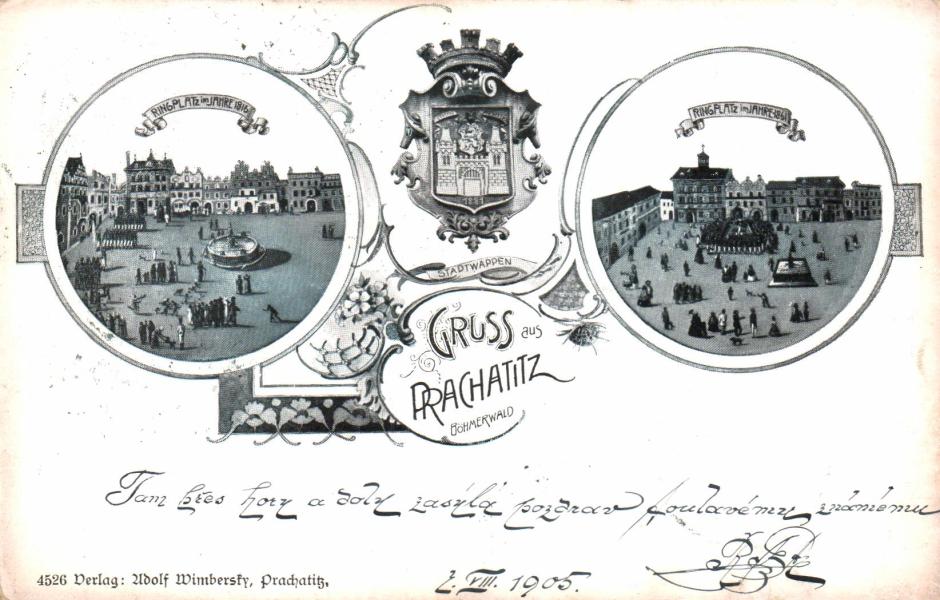 RINGPLATZ im JAHRE 1816
RINGPLATZ im JAHRE 1841
STADTWAPPEN
GRUSS aus
PRACHATITZ
BÖHMERWALD
Tam přes hory a doly zasýlá pozdrav známému
2. VIII. 1905.
4526 Verlag: Adolf Wimbersky, Prachatitz.